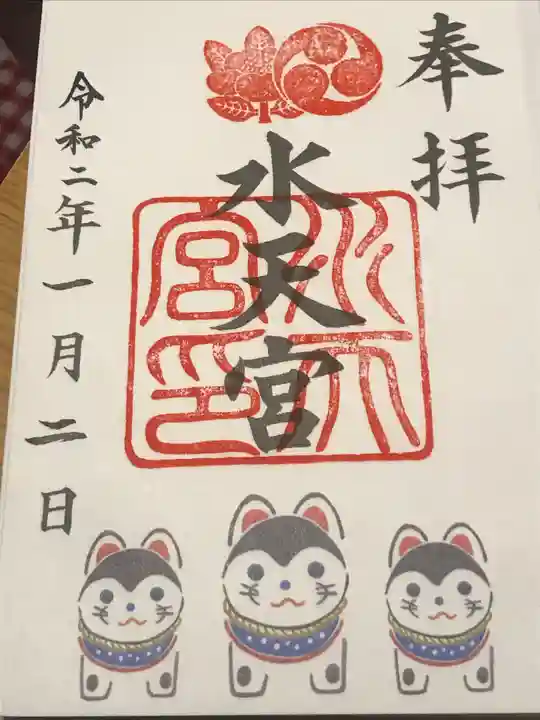 奉拝
水天宮
水天宮印
令和二年一月二日